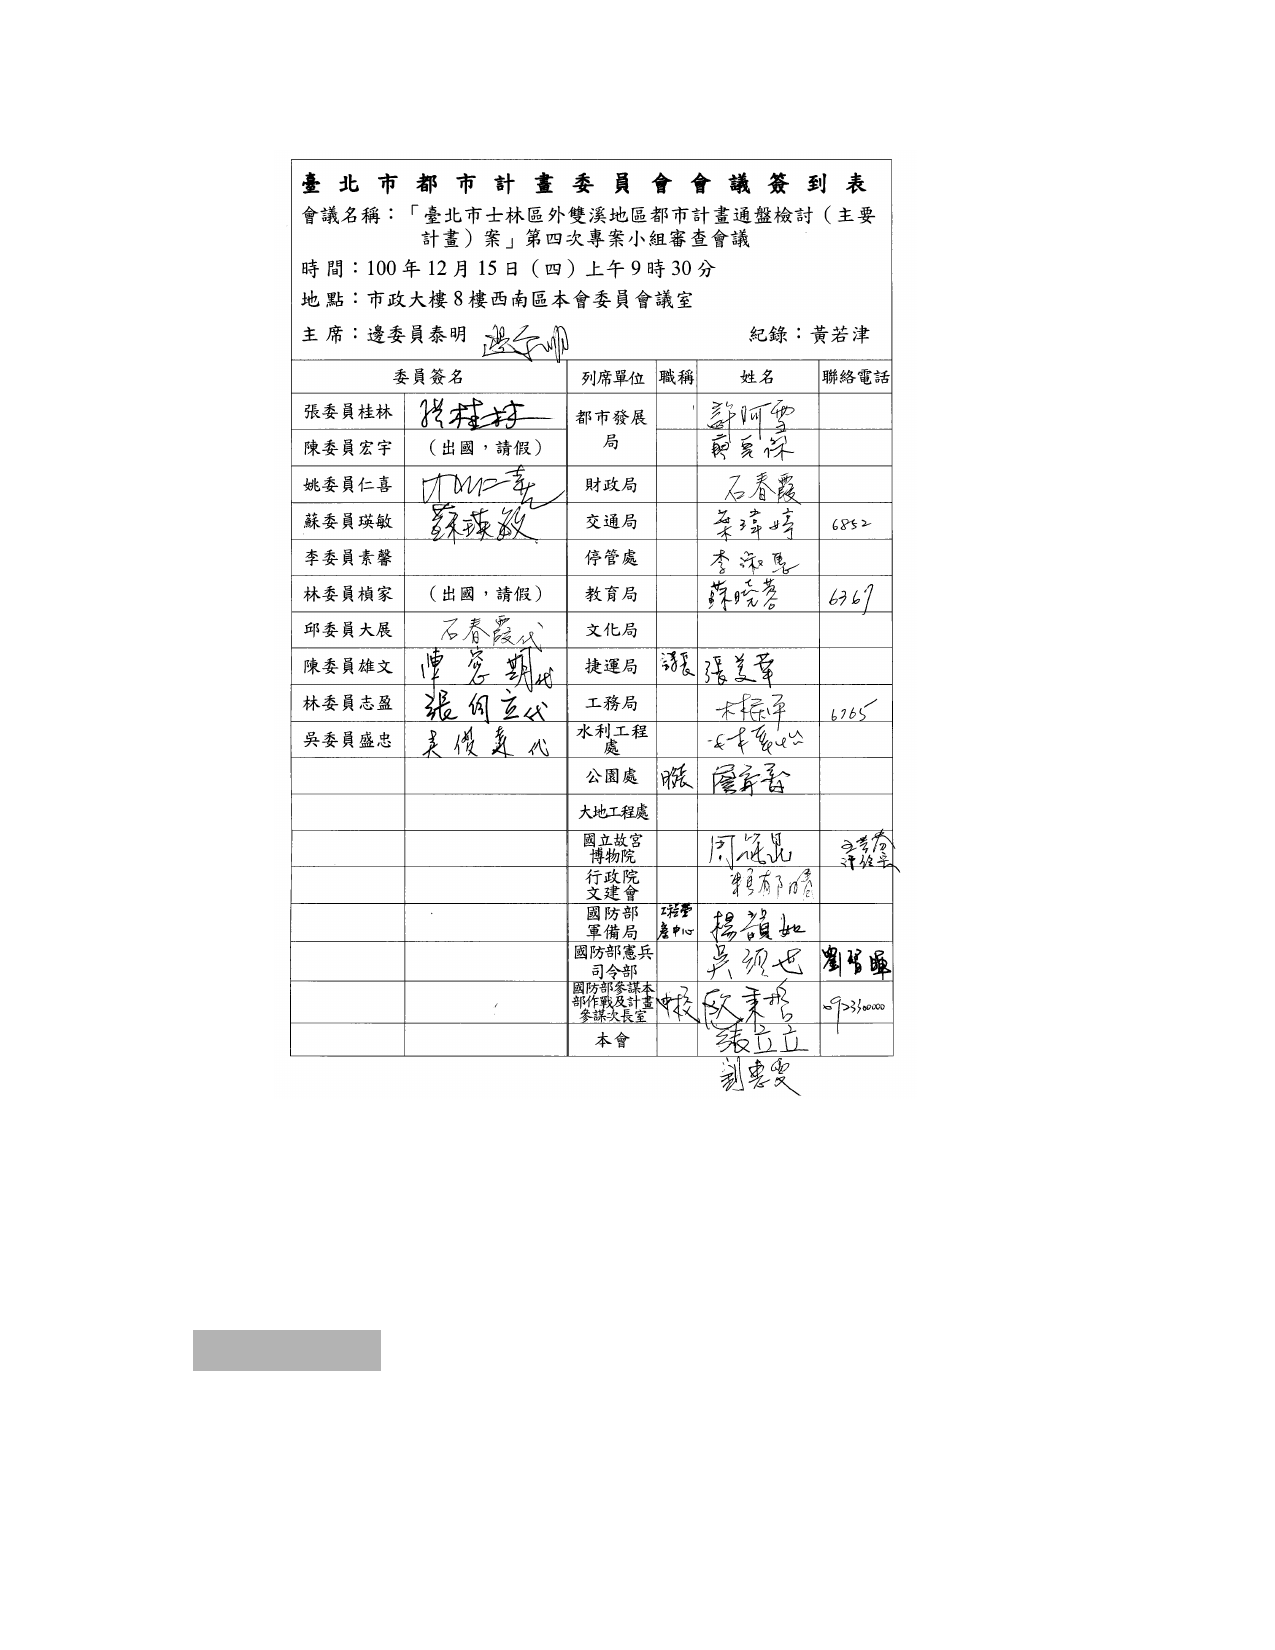 臺北市都市計畫委員會會議簽到表
會議名稱：「臺北市士林區外雙溪地區都市計畫通盤檢討（主要
計畫）案」第四次專案小組審查會議
時間：100年12月15日（四）上午9時30分
地點：市政大樓8樓西南區本會委員會議室
主席：邊委員泰明 邊泰明 紀錄：黃若津
委員簽名 列席單位 職稱 姓名 聯絡電話
張委員桂林 張桂林 都市發展局 許阿雪
陳委員宏宇 （出國，請假）
姚委員仁喜 姚仁喜 財政局 石春霞
蘇委員瑛敏 蘇瑛敏 交通局 葉瑋婷 6852
李委員素馨 停管處
林委員楨家 （出國，請假） 教育局 蘇曉蓉 6367
邱委員大展 石春霞代 文化局
陳委員雄文 代 捷運局 張美華
林委員志盈 張 立代 工務局 6765
吳委員盛忠 吳俊 代 水利工程處
公園處
大地工程處
國立故宮博物院
行政院文建會
國防部軍備局 工程營產中心 楊韻如
國防部憲兵司令部 劉智
國防部參謀本部作戰及計畫參謀次長室 中校
本會 張立立
劉惠雯